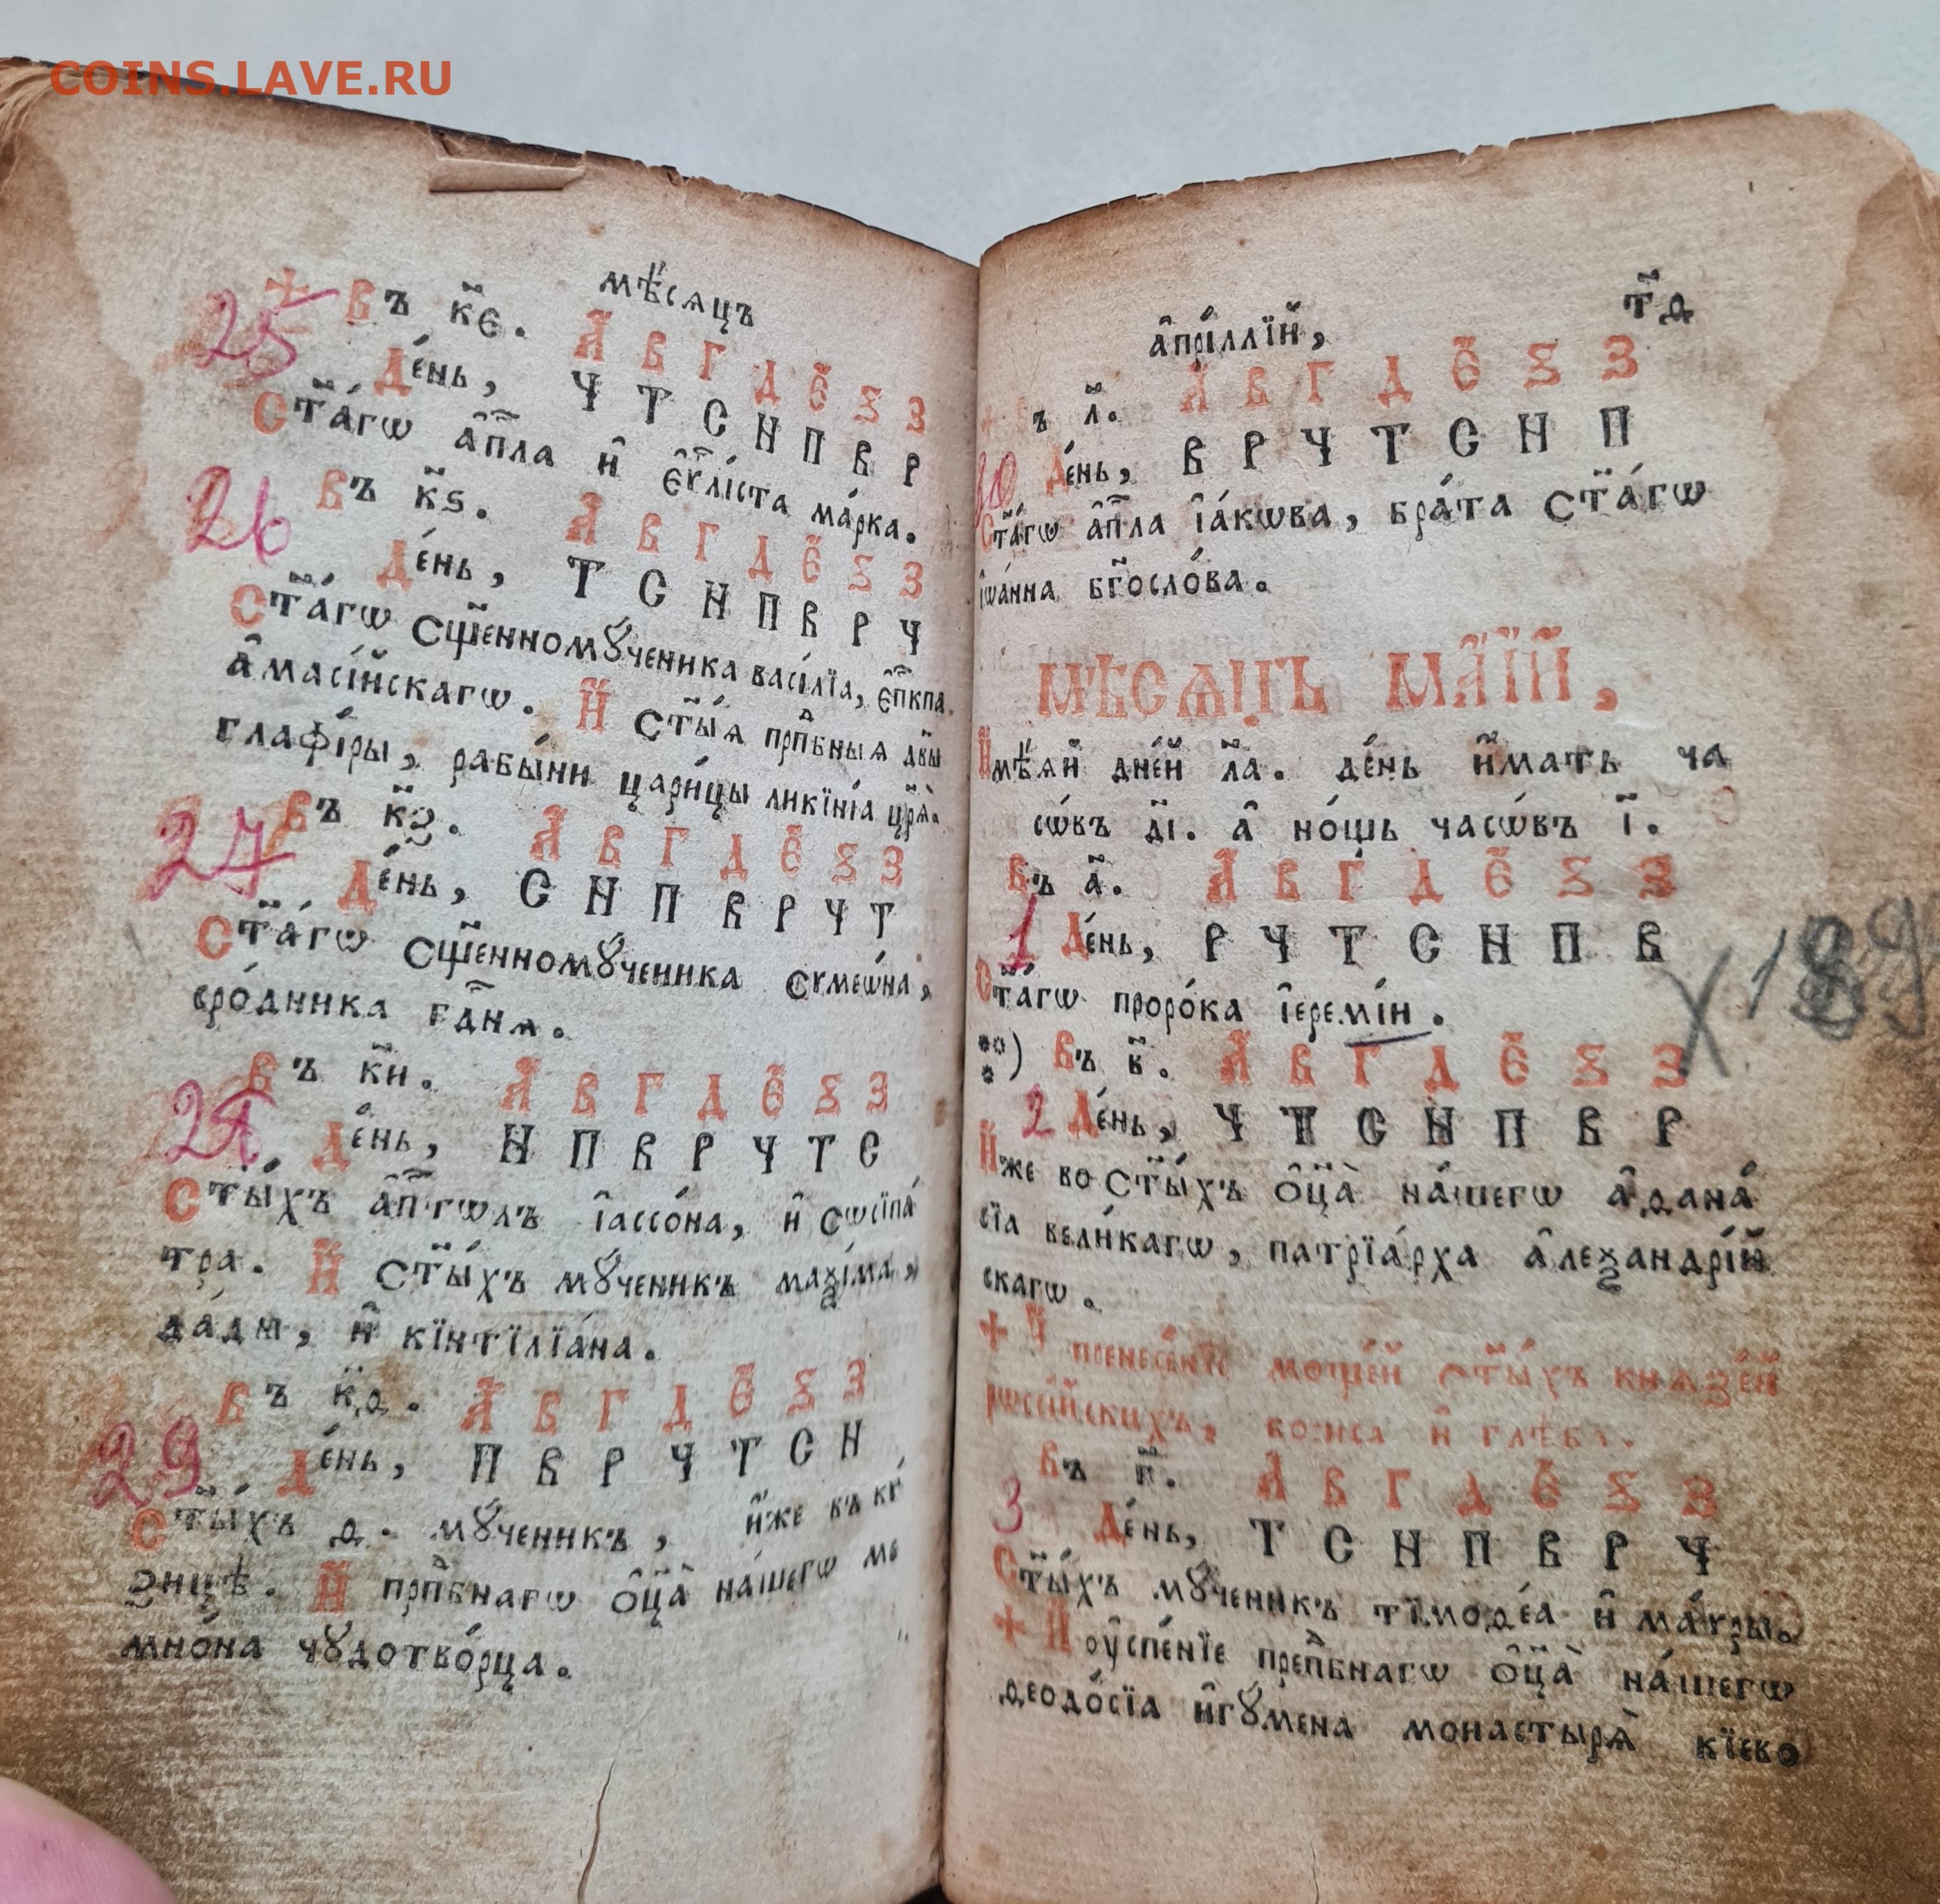 COINS.LAVE.RU
мѣ́сяцъ
+ Въ к҃є. А В Г Д Є Ѕ З
25
День, Ч Т С Н П В Р
Ст҃а́гѡ а҆п҃ла и҆ є҆ѵ҃лі́ста ма́рка.
26 Въ к҃ѕ. А В Г Д Є Ѕ З
День, Т С Н П В Р Ч
Ст҃а́гѡ сщ҃енномꙋ́ченика васі́лїа, є҆п҃кпа
а҆масі́йскагѡ. И҆ ст҃ы́ѧ прп҃бныѧ дв҃ы
глафі́ры, рабы́ни цари́цы ликїні́а цр҃ѧ̀.
27 Въ к҃з. А В Г Д Є Ѕ З
День, С Н П В Р Ч Т
Ст҃а́гѡ сщ҃енномꙋ́ченика сѵмеѡ́на,
сро́дника гд҃нѧ.
Въ к҃и. А В Г Д Є Ѕ З
28
День, Н П В Р Ч Т С
Ст҃ы́хъ а҆п҃гѡлъ і҆ассо́на, и҆ сѡсіпа́
тра. И҆ ст҃ы́хъ мꙋ́ченикъ маѯі́ма,
да́ды, и҆ кїнтїлїа́на.
Въ к҃ѳ. А В Г Д Є Ѕ З
29 День, П В Р Ч Т С Н
Ст҃ы́хъ ѳ. мꙋ́ченикъ, и҆́же въ кѵ́
зицѣ. И҆ прп҃бнагѡ ѻ҆ц҃а̀ на́шегѡ ме
мно́на чꙋдотво́рца.
а҆прі́ллїй, т҃ѳ
+ Въ л҃. А В Г Д Є Ѕ З
30 День, В Р Ч Т С Н П
Ст҃а́гѡ а҆п҃ла і҆а́кѡва, бра́та ст҃а́гѡ
і҆ѡа́нна бг҃осло́ва.
МѢСѦЦЪ МА́ІЙ,
И҆мѣ́ѧй дне́й л҃а. де́нь и҆́мать ча
сѡ́въ д҃і. а҆ но́щь часѡ́въ і҃.
Въ а҃. А В Г Д Є Ѕ З
1 День, Р Ч Т С Н П В
Х 189
Ст҃а́гѡ проро́ка і҆еремі́и.
Въ в҃. А В Г Д Є Ѕ З
2 День, Ч Т С Н П В Р
И҆́же во ст҃ы́хъ ѻ҆ц҃а̀ на́шегѡ а҆ѳана́
сїа вели́кагѡ, патрїа́рха а҆леѯандрі́й
скагѡ.
+ И҆ пренесе́нїе моще́й ст҃ы́хъ кнѧзе́й
рѡссі́йскихъ, бориса и҆ глѣба.
Въ г҃. А В Г Д Є Ѕ З
3 День, Т С Н П В Р Ч
Ст҃ы́хъ мꙋ́ченикъ тїмоѳе́а и҆ ма́ѵры.
+ И҆ оу҆спе́нїе преп҃бнагѡ ѻ҆ц҃а̀ на́шегѡ
ѳеодо́сїа и҆гꙋ́мена монастырѧ̀ кїево